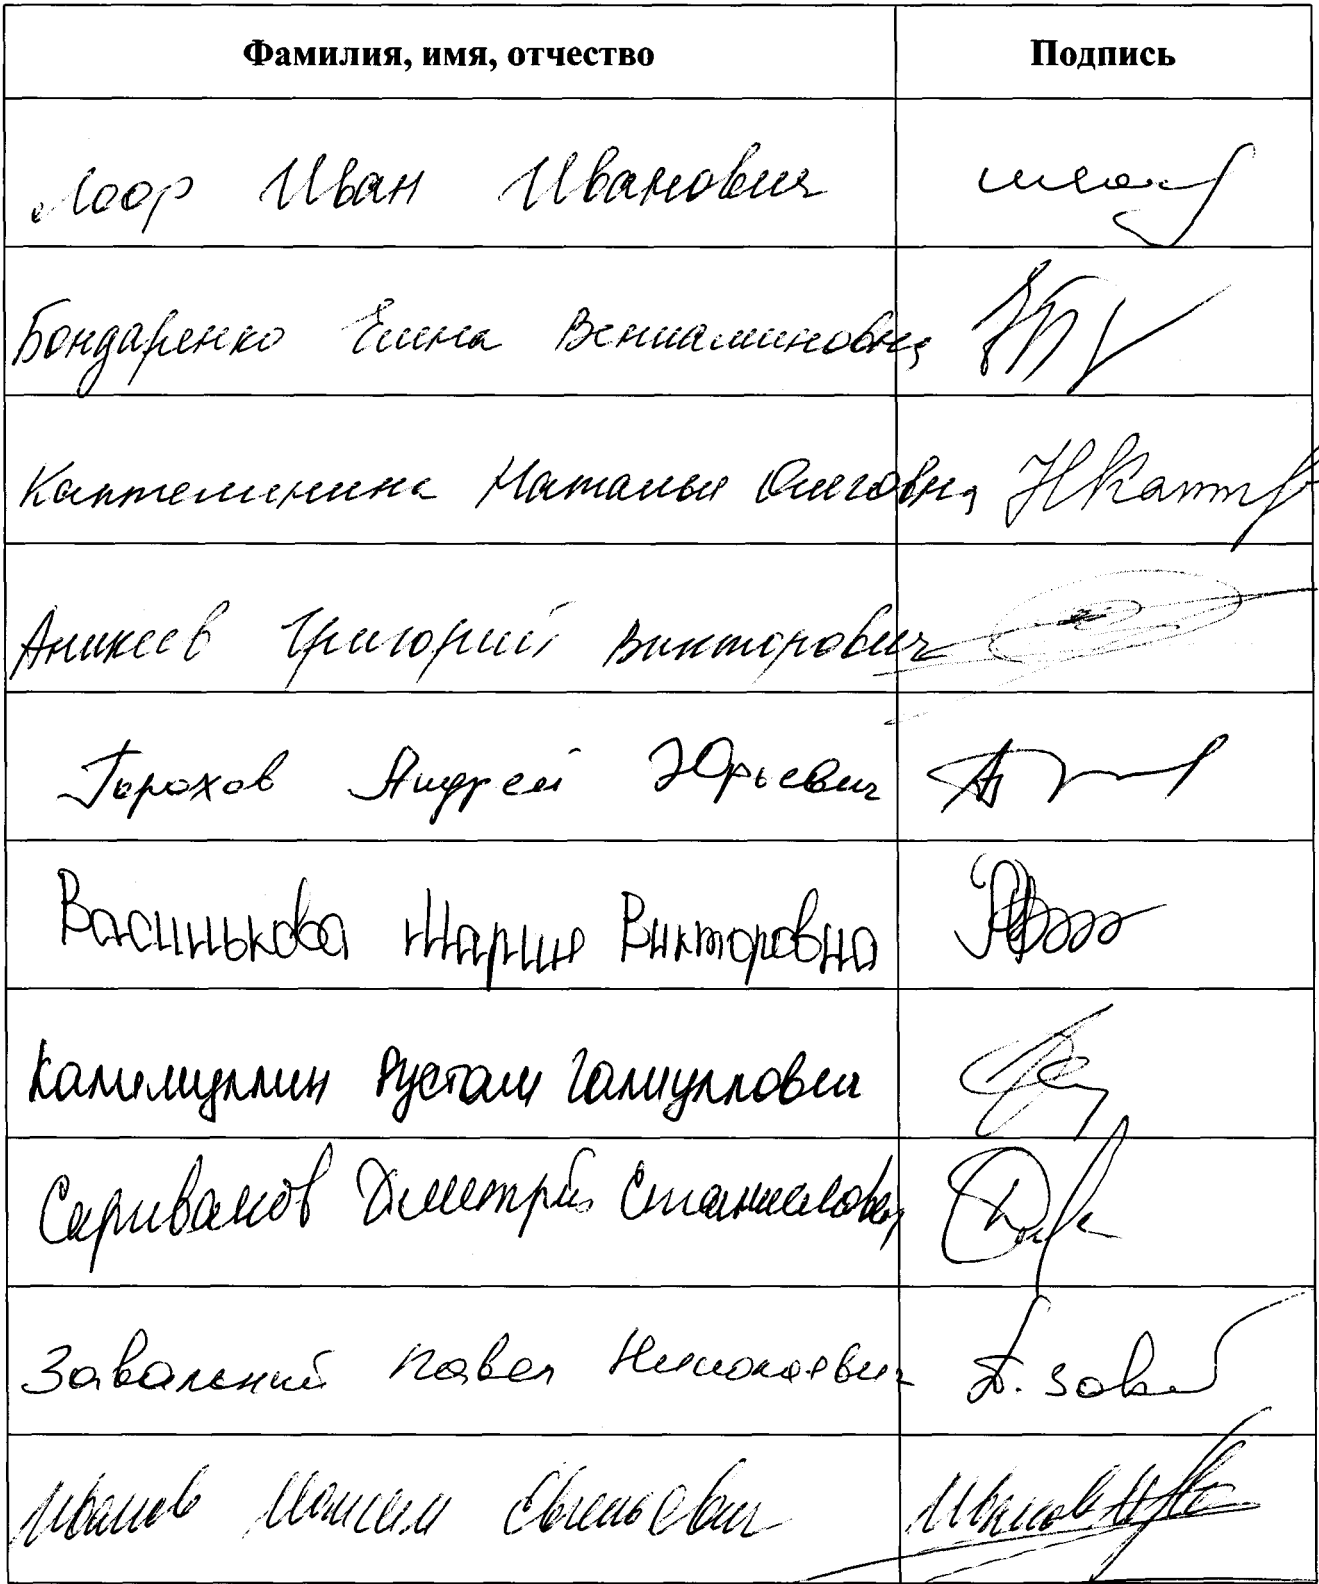 Фамилия, имя, отчество Подпись
Лоор Иван Иванович
Бондаренко Елена Вениаминовна
Каптелинина Наталья Олеговна
Аникеев Григорий Викторович
Горохов Андрей Юрьевич
Васинькова Мария Викторовна
Калимуллин Рустам Галиуллович
Дмитрий Станиславович
Завальный Павел Николаевич П. Зав
Иванов Максим Евгеньевич